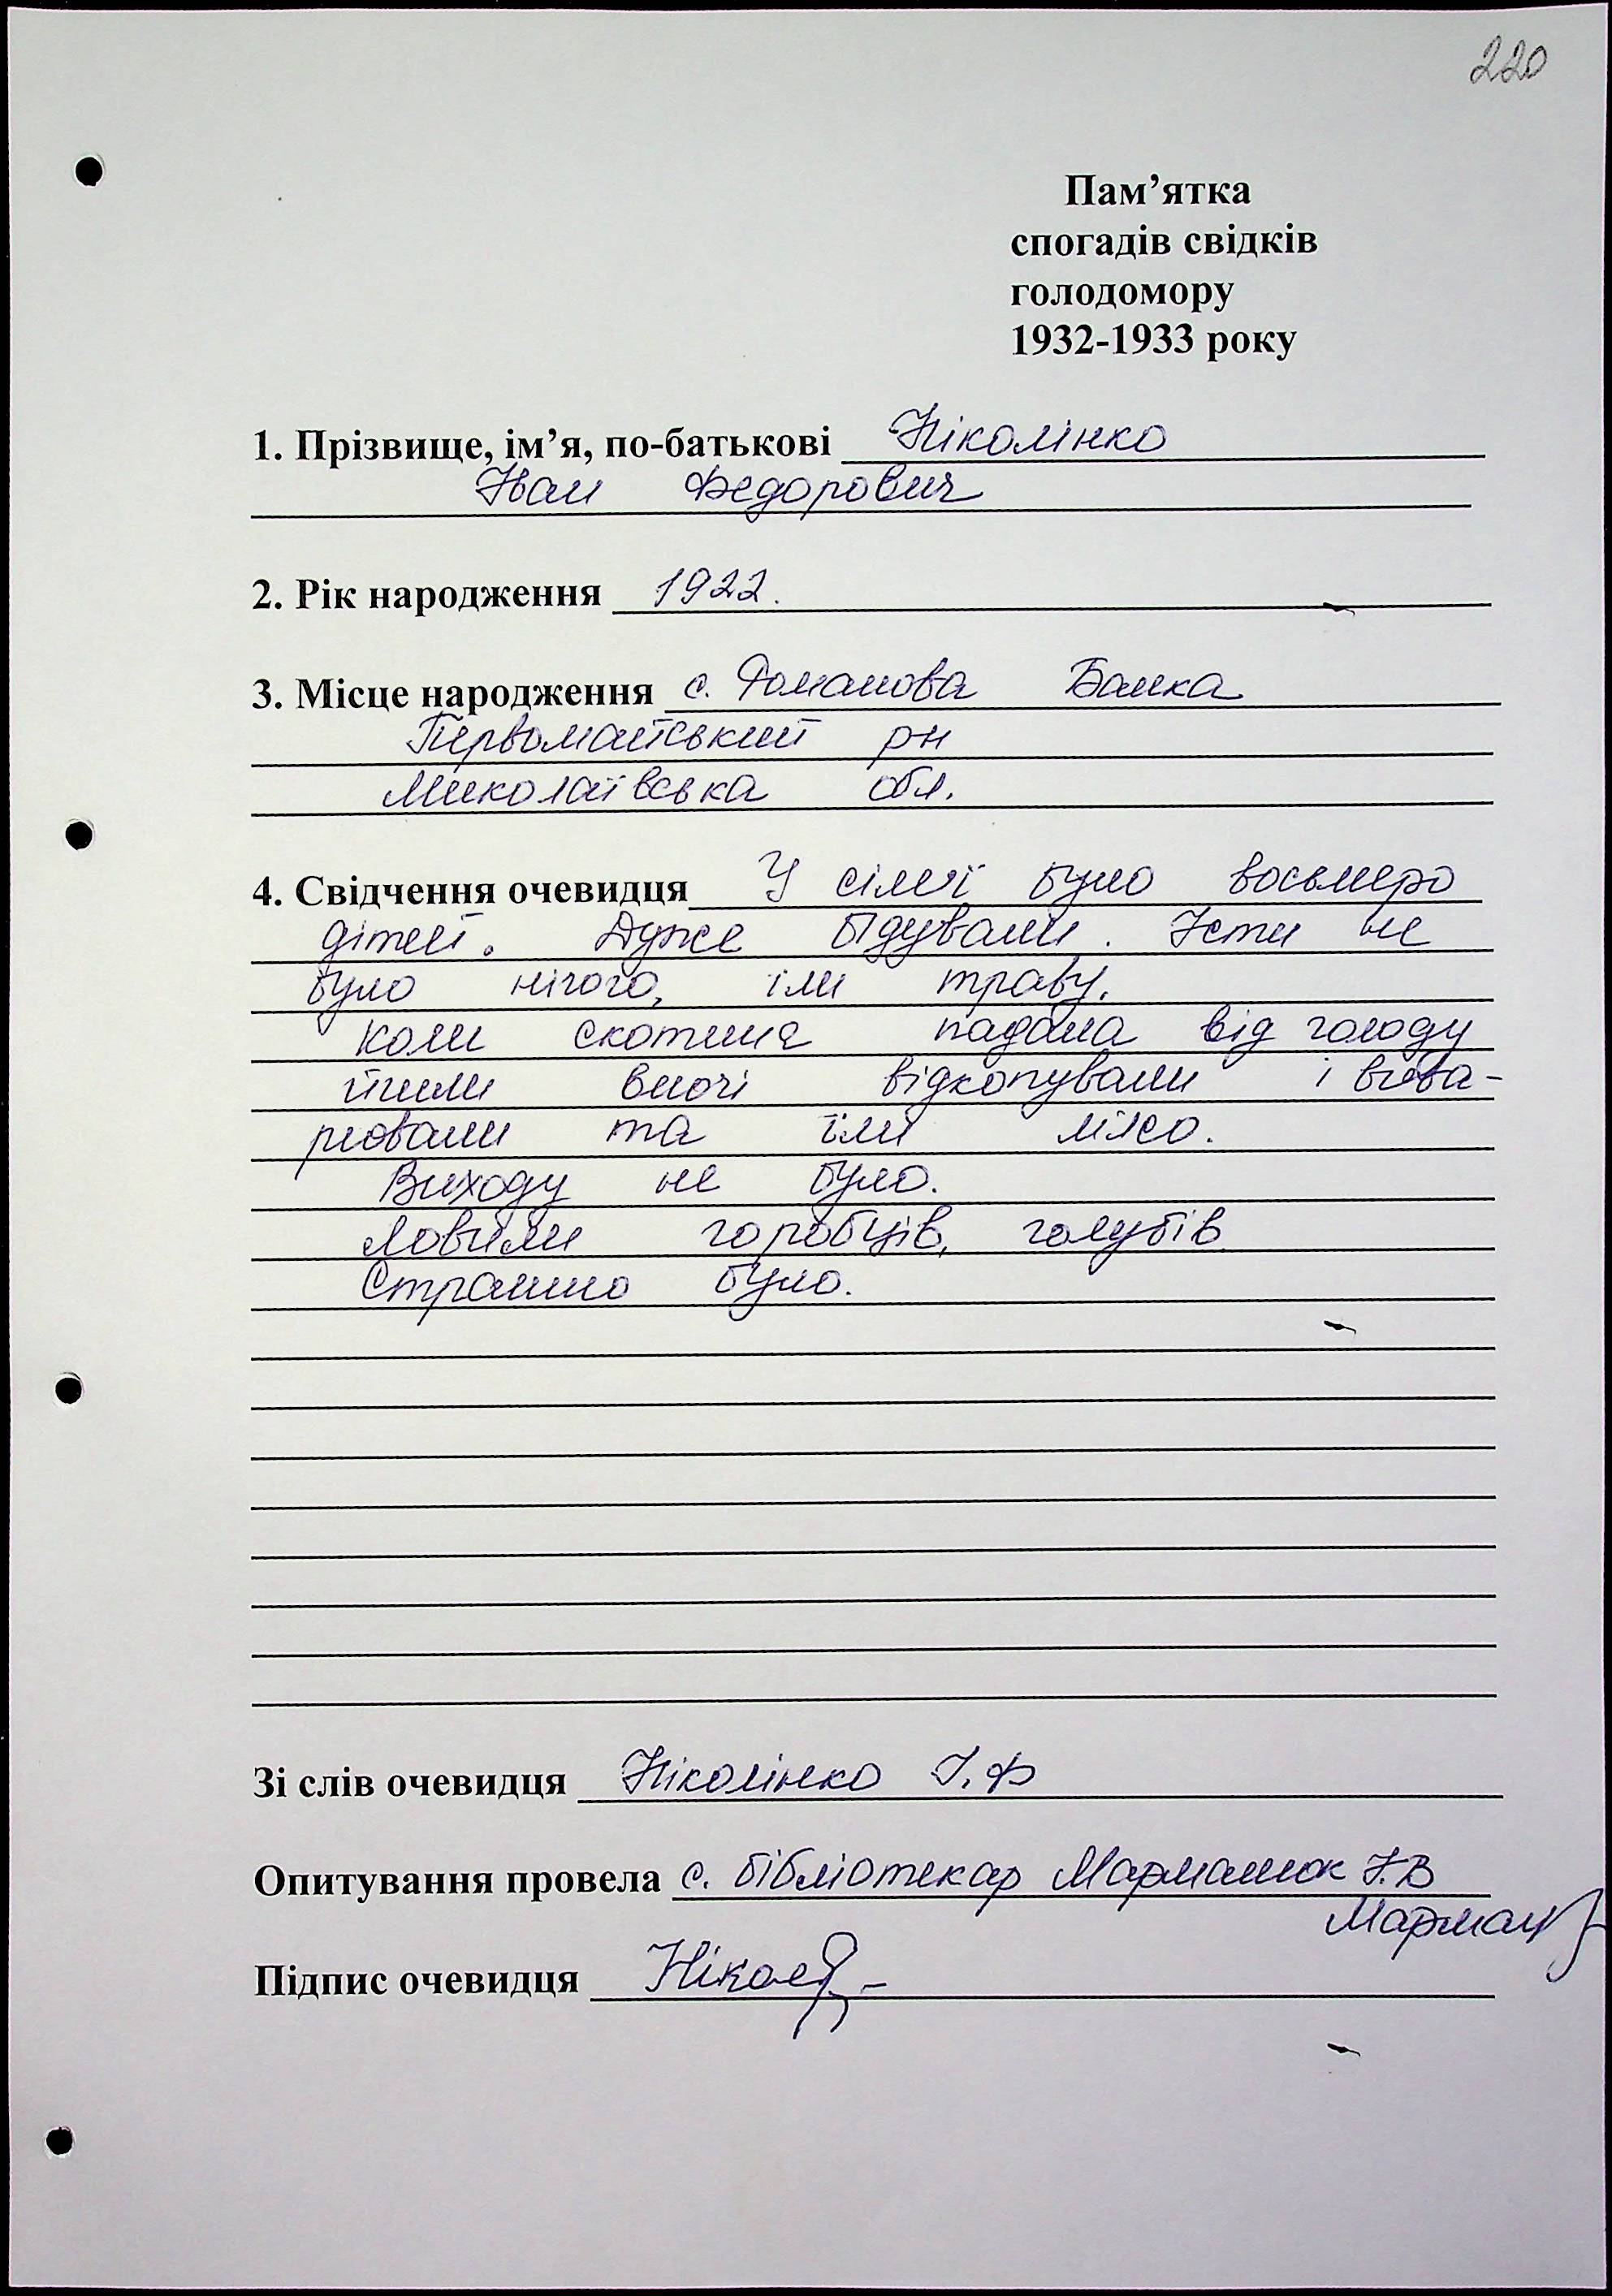 220
Пам’ятка
спогадів свідків
голодомору
1932-1933 року
1. Прізвище, ім’я, по-батькові Ніколінко
Іван Федорович
2. Рік народження 1922.
3. Місце народження с. Романова Балка
Первомайський рн
Миколаївська обл.
4. Свідчення очевидця У сімї було восьмеро
дітей. Дуже бідували. Їсти не
було нічого, їли траву.
Коли скотина падала від голоду
йшли вночі відкопували і вива-
рювали та їли мясо.
Виходу не було.
Ловили горобців, голубів
Страшно було.
Зі слів очевидця Ніколінко І.Ф
Опитування провела с. бібліотекар Марманюк Н.В
Підпис очевидця